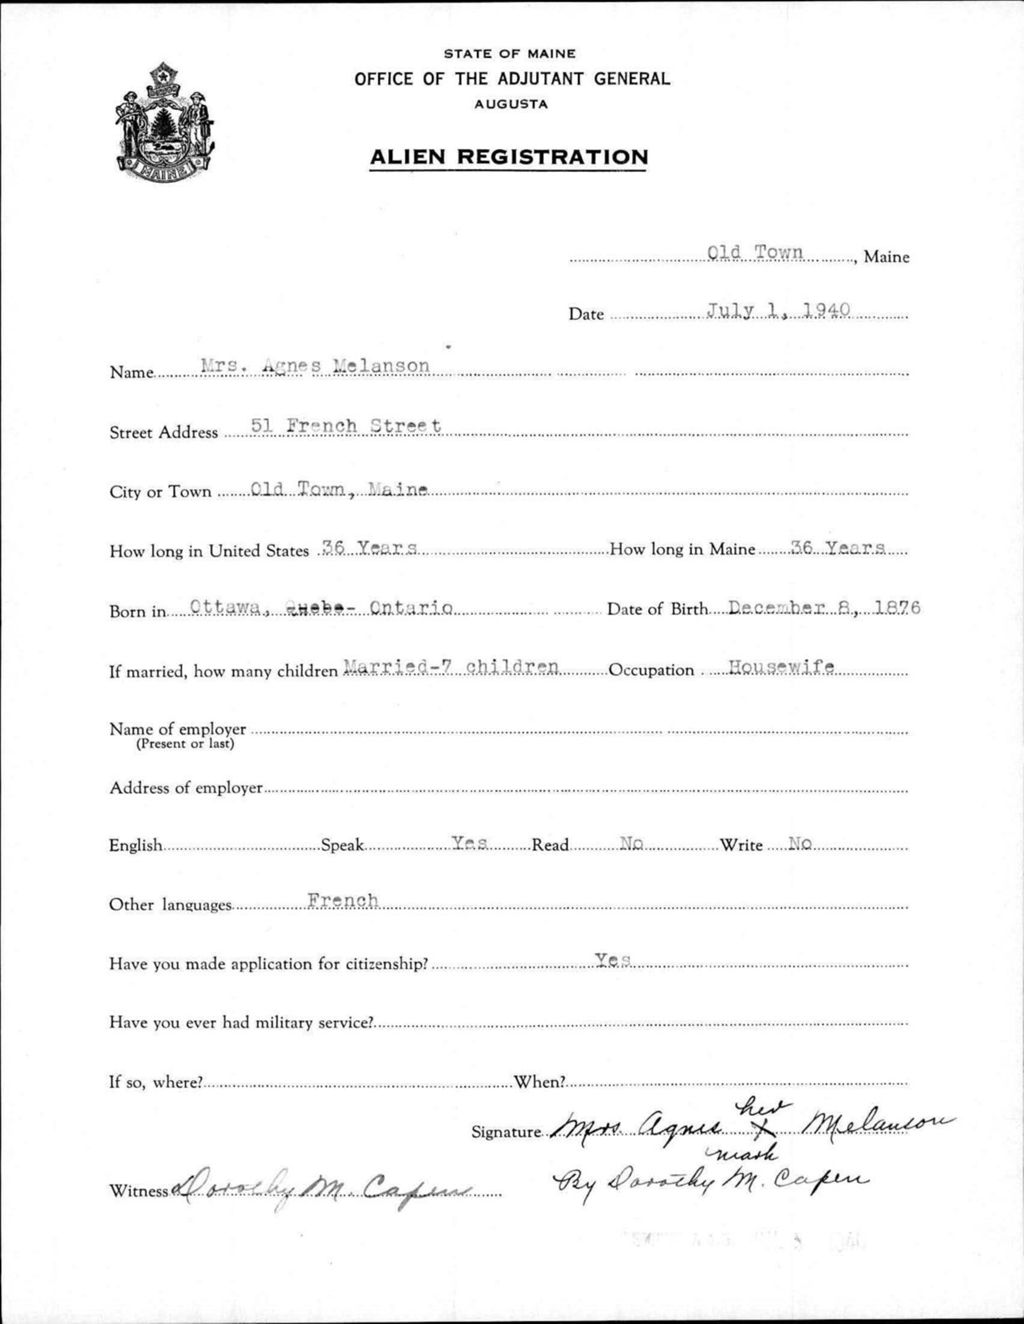 STATE OF MAINE
OFFICE OF THE ADJUTANT GENERAL
AUGUSTA
ALIEN REGISTRATION
MAINE
Old Town, Maine
Date July 1, 1940
Name Mrs. Agnes Melanson
Street Address 51 French Street
City or Town Old Town, Maine
How long in United States 36 Years How long in Maine 36 Years
Born in Ottawa, Quebe- Ontario Date of Birth December 8, 1876
If married, how many children Married-7 children Occupation Housewife
Name of employer
(Present or last)
Address of employer
English Speak Yes Read No Write No
Other languages French
Have you made application for citizenship? Yes
Have you ever had military service?
If so, where? When?
her
Signature Mrs Agnes X Melanson
mark
Witness Dorothy M. Capen By Dorothy M. Capen